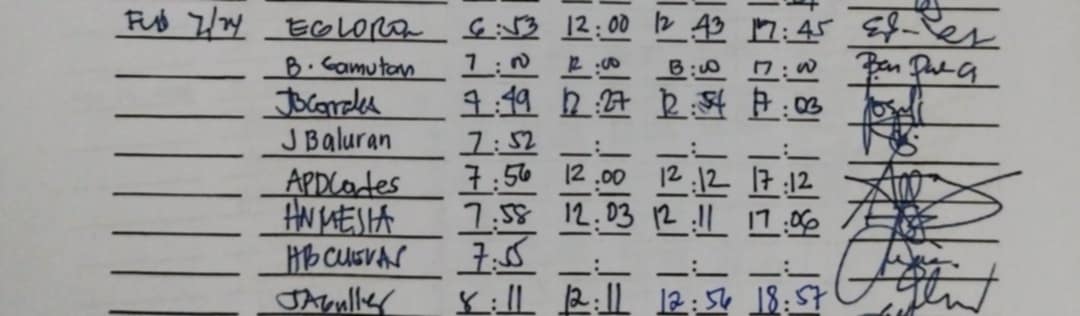 Feb 7/24 EGLORIA 6:53 12:00 12 43 17:45
B. Gamutan 7:00 12:00 13:00 17:00
7:49 12:27 12:54 17:03
J Baluran 7:52 _:_ _:_ _:_
APDCortes 7:56 12:00 12:12 17:12
HNMESIA 7:58 12:03 12:11 17:06
HBCUEVAS 7:55 _:_ _:_ _:_
8:11 12:11 12:56 18:57